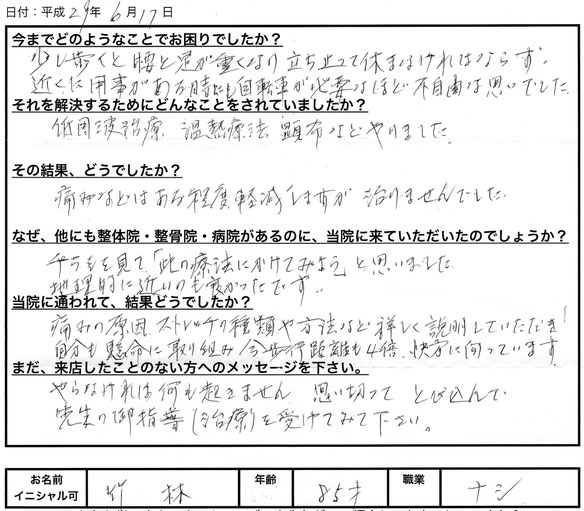 日付：平成29年6月17日
今までどのようなことでお困りでしたか？
少し歩くと腰と足が重くなり立ち止って休まなければならず、
近くに用事がある時にも自転車が必要なほど不自由な思いでした。
それを解決するためにどんなことをされていましたか？
低周波治療、温熱療法、顕布などやりました。
その結果、どうでしたか？
痛みなどはある程度軽減しますが治りませんでした。
なぜ、他にも整体院・整骨院・病院があるのに、当院に来ていただいたのでしょうか？
チラシを見て「此の療法にかけてみよう」と思いました。
地理的に近いのも良かったです。
当院に通われて、結果どうでしたか？
痛みの原因、ストレッチの種類や方法など詳しく説明していただき！
自分も懸命に取り組み今歩行距離も4倍、快方に向っています。
まだ、来店したことのない方へのメッセージを下さい。
やらなければ何も起きません 思い切って とび込んで
先生の御指導（治療）を受けてみて下さい。
お名前 イニシャル可 竹林 年齢 85才 職業 ナシ